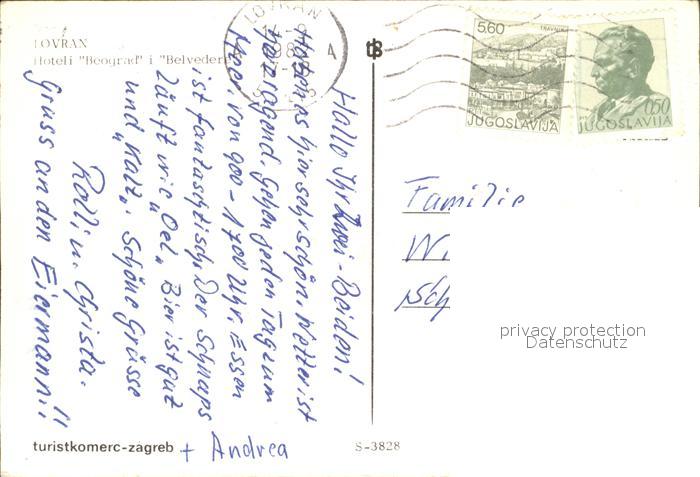 LOVRAN
Hoteli "Beograd" i "Belvedere"
LOVRAN
5.60
TRAVNIK
JUGOSLAVIJA
0.50
JUGOSLAVIJA
Hallo Ihr Zwei-Beiden!
Haben es hier sehr schön. Wetter ist
hervorragend. Gehen jeden Tag zum
Meer, von 900-1700 Uhr. Essen
ist fantastisch. Der Schnaps
läuft wie "Oel", Bier ist gut
und "kalt". Schöne Grüsse
Rolli u. Christa.
Gruss an den Eiermann!!
+ Andrea
Familie
W.
Sch
privacy protection
Datenschutz
turistkomerc-zagreb
S-3828